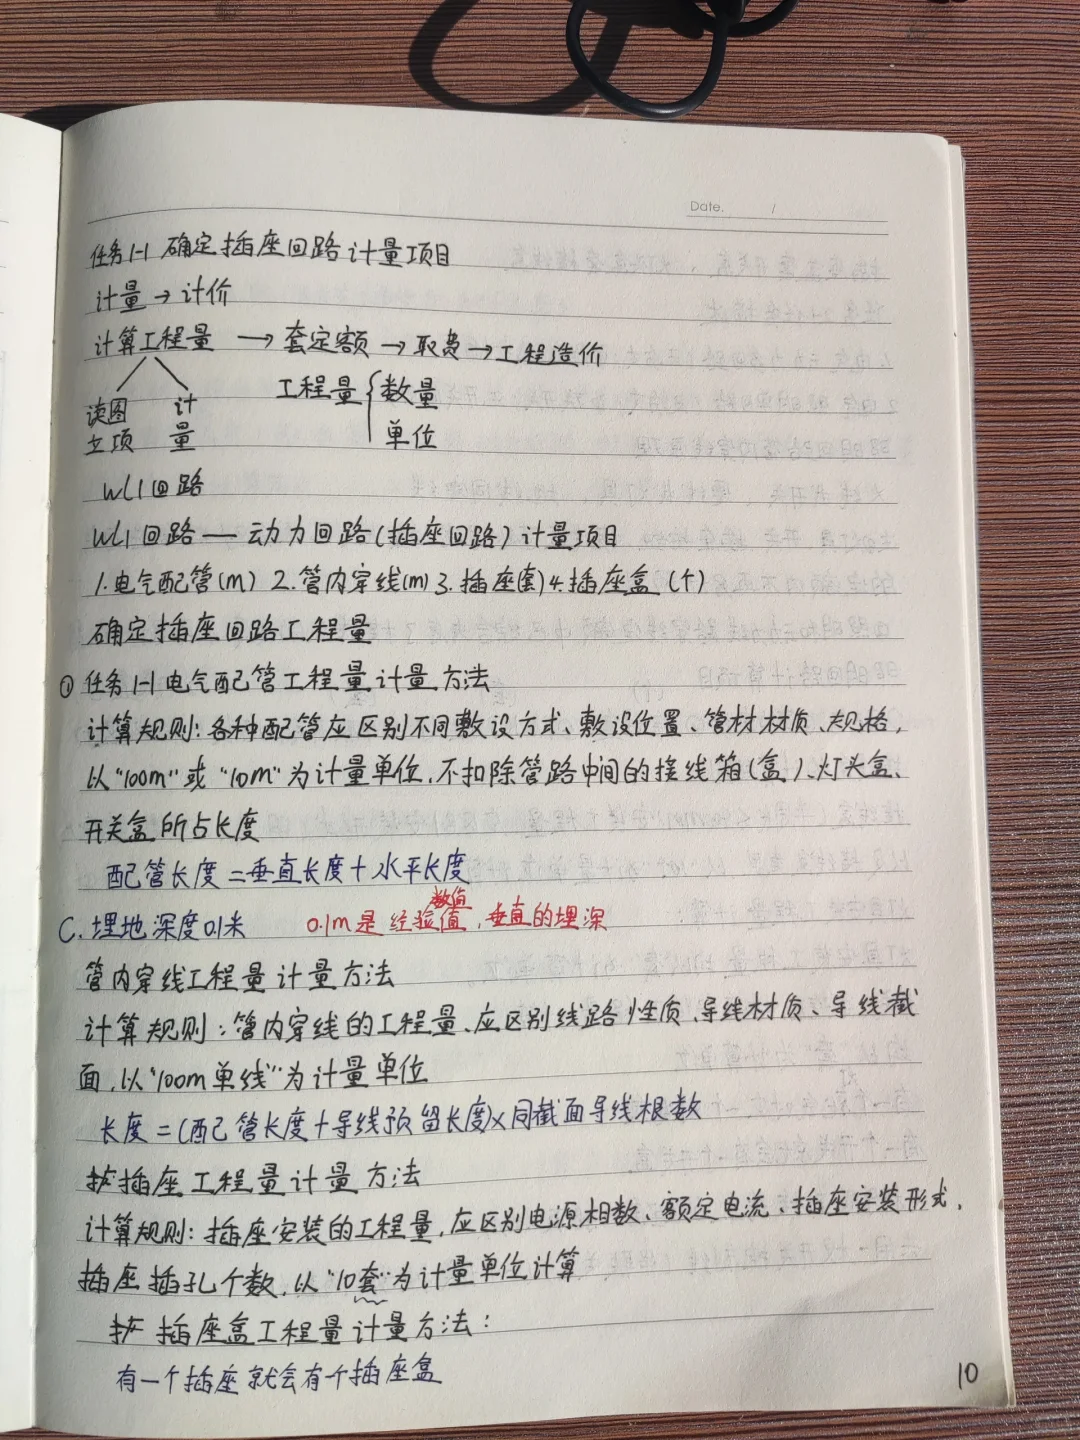 Date. /
任务1-1 确定插座回路计量项目
计量→计价
计算工程量 →套定额→取费→工程造价
读图 计 工程量{数量
立项 量 单位
WL1回路
WL1回路——动力回路(插座回路)计量项目
1.电气配管(m) 2.管内穿线(m) 3.插座(套) 4.插座盒(个)
确定插座回路工程量
① 任务1-1 电气配管工程量计量方法
计算规则:各种配管应区别不同敷设方式、敷设位置、管材材质、规格,
以"100m"或"10m"为计量单位,不扣除管路中间的接线箱(盒)、灯头盒、
开关盒所占长度
配管长度=垂直长度+水平长度
数值
C.埋地深度0.1米 0.1m是经验值,垂直的埋深
管内穿线工程量计量方法
计算规则:管内穿线的工程量、应区别线路性质、导线材质、导线截
面,以"100m单线"为计量单位
长度=(配管长度+导线预留长度)×同截面导线根数
插座工程量计量方法
计算规则:插座安装的工程量,应区别电源相数、额定电流、插座安装形式,
插座插孔个数,以"10套"为计量单位计算
插座盒工程量计量方法:
有一个插座就会有个插座盒
10